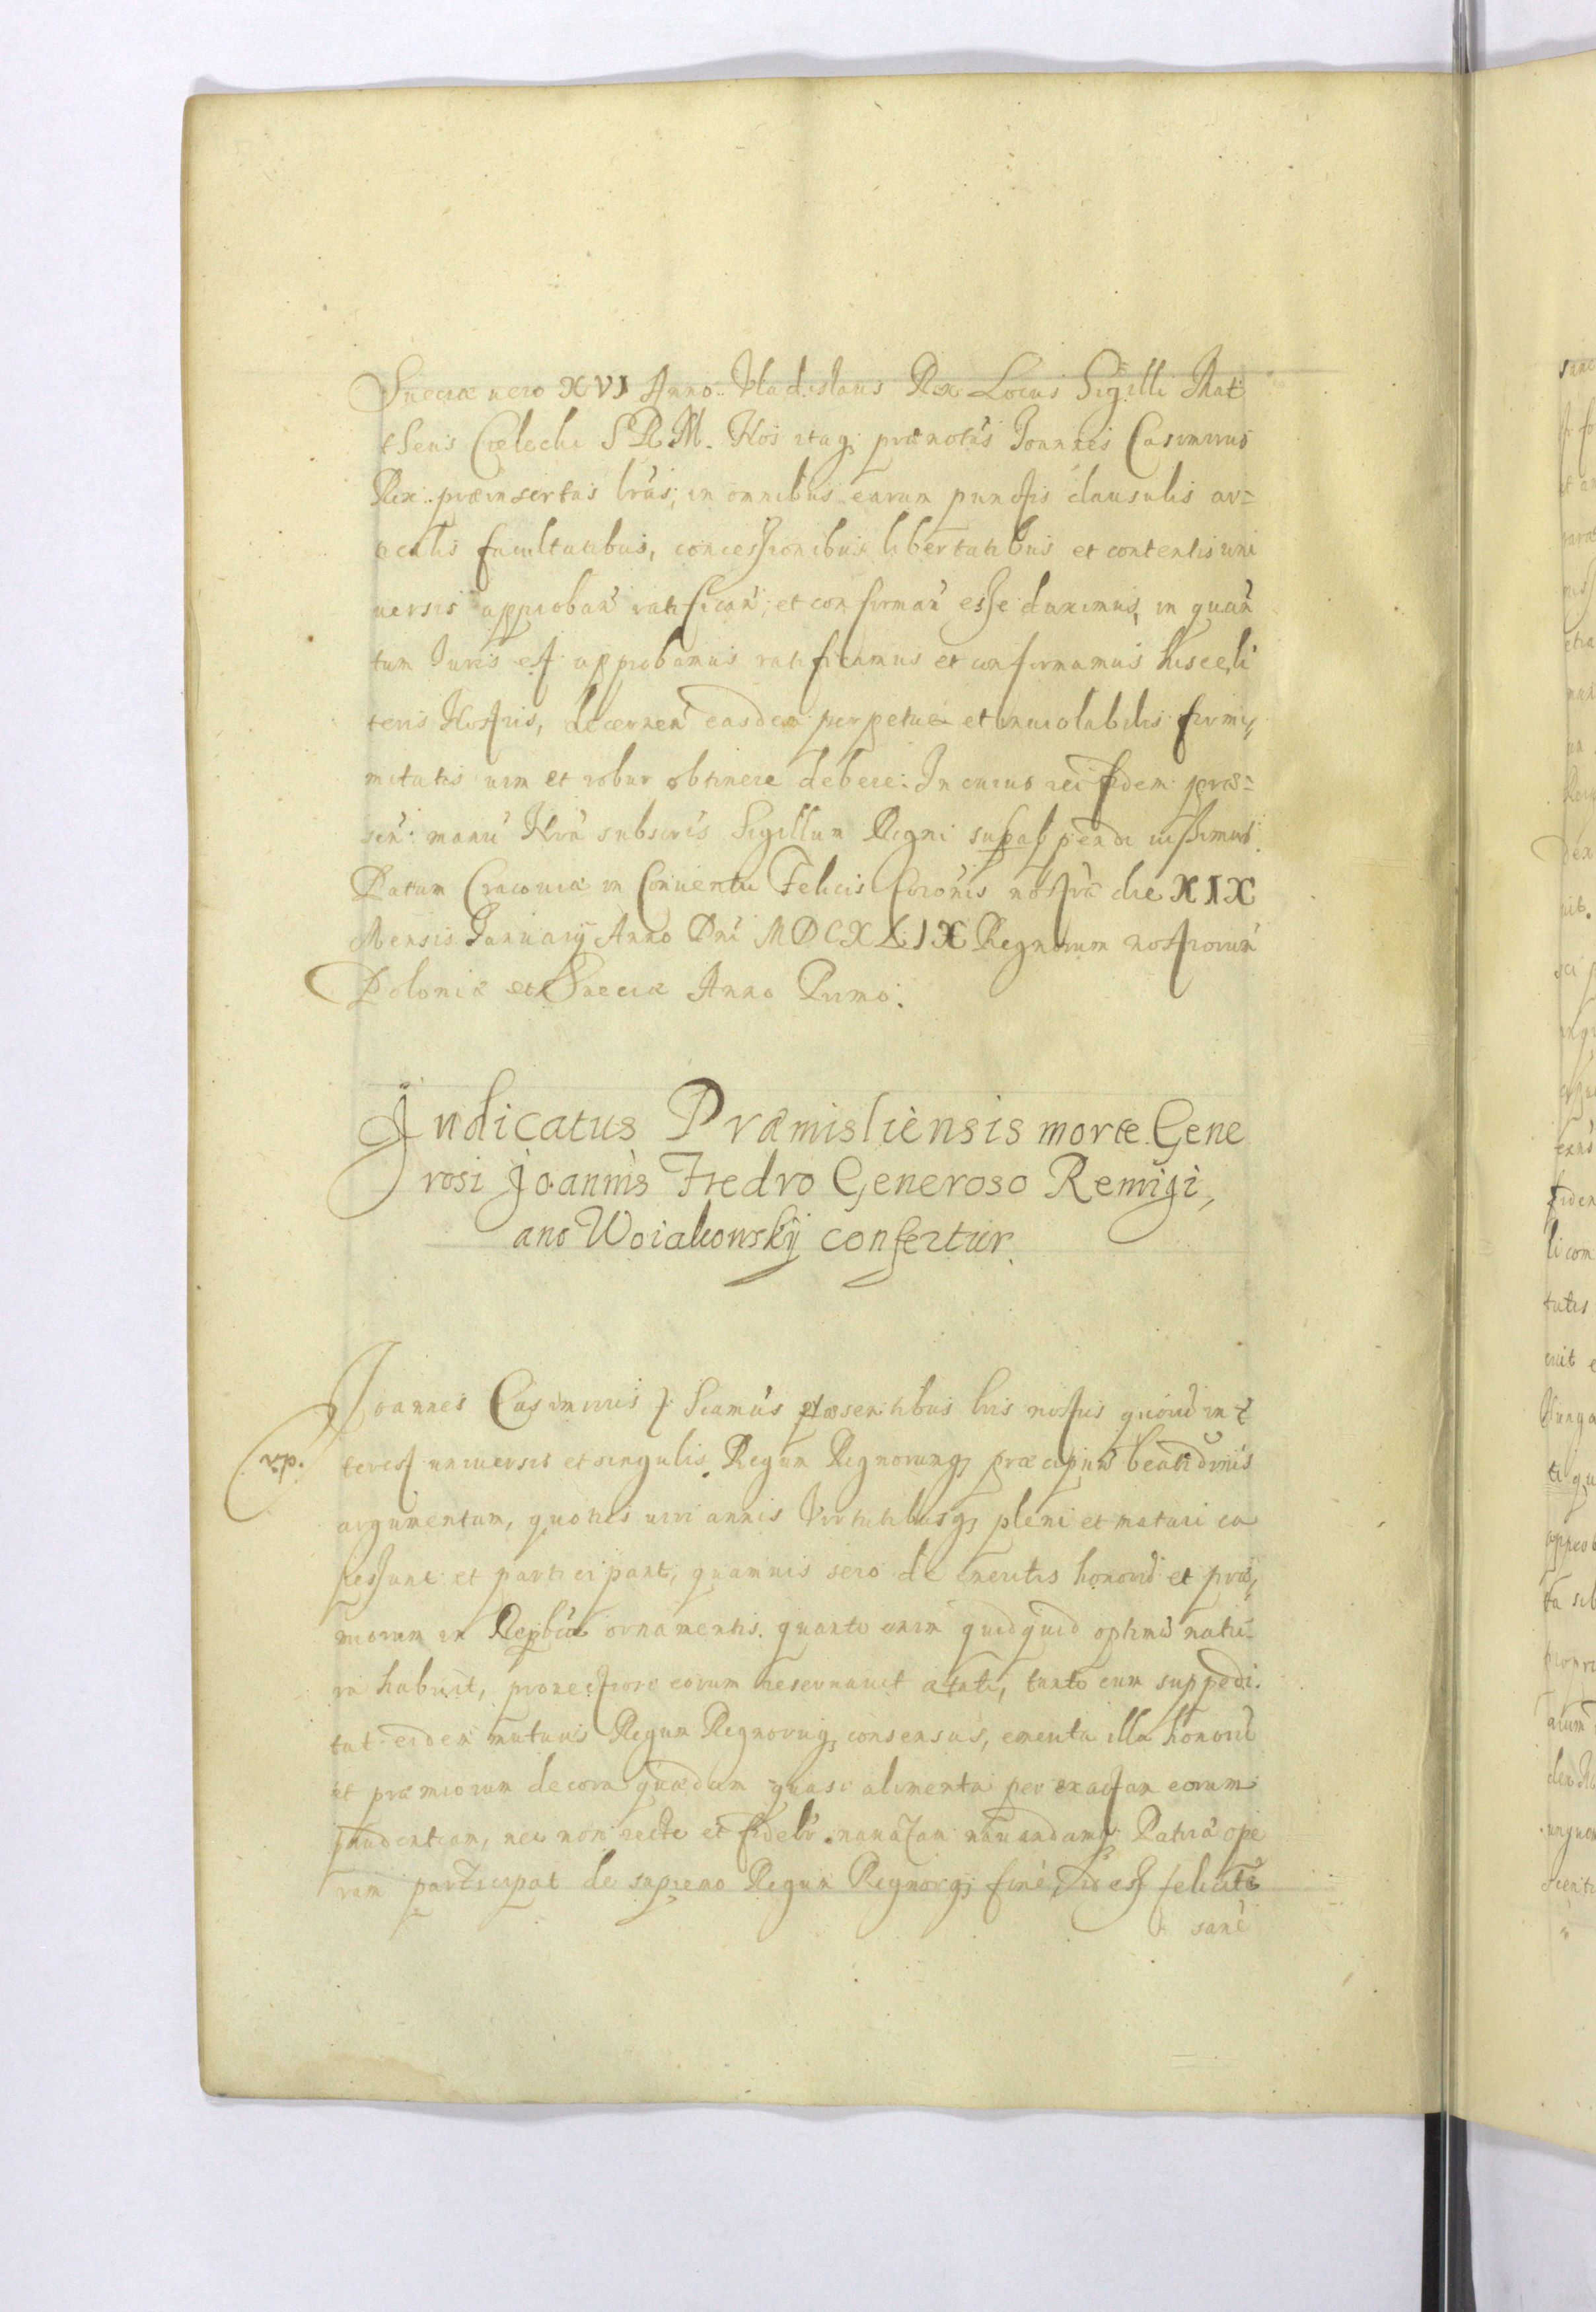 Sueciæ uero XVI Anno. Vladislaus Rex Locus Sigilli Mat
thæus Cielecki SRM. Nos itaq3 prænotús Joannes Casimirus
Rex. præinsertas lrás, in omnibus earum punctis clausulis ar=
ticulis facultatibus, concessionibus libertatibus et contentis uni
uersis approbań ratifican, et confirmań esse duximus, in quan
tum Juris est approbamus ratificamus et confirmamus hisce li
teris Nostris, decernen easdem perpetuæ et inuiolabilis firmi,,
mitatis uim et robur obtinere debere: In cuius rei fidem præ=
sen: manú Nrá subscris Sigillum Regni suppapendi iussimus.
Datum Cracouiæ in Conuentu Felicis Coronis nostræ die XIX
Mensis January Anno Dni MDCXLIX Regnorum nostrorum
Poloniæ et Sueciæ Anno Primo.
Judicatus Præmisliensis morte Gene
rosi Joannis Fredro Generoso Remigi,
ano Woiakowskij confertur.
Joannes Casimirus Sciamús præsentibus lris nostris quorú in
terest uniuersis et singulis. Regum Regnorumq3 præcipuum beatidinis
rp.
argumentum, quoties uiri annis Virtutibusq3 pleni et maturi ca
pessunt et participant, quamuis sero de emeritis honorú et præ,
miorum in Repbca ornamentis. quanto enim quidquid optimú natu
ra habuit, prouectiore eorum reseruauit ætati, tanto eum suppedi
tat eidem mutuus Regum Regnorumq3 consensus, emerita illa honorú
et præmiorum decora quædam quasi alimenta per exactam eorum
prudentiam, nec non recte et fidelr nauatam nauandamq3 Patriæ ope
ram participat de supremo Regum Regnorq3 fine, id est felicitá
sané